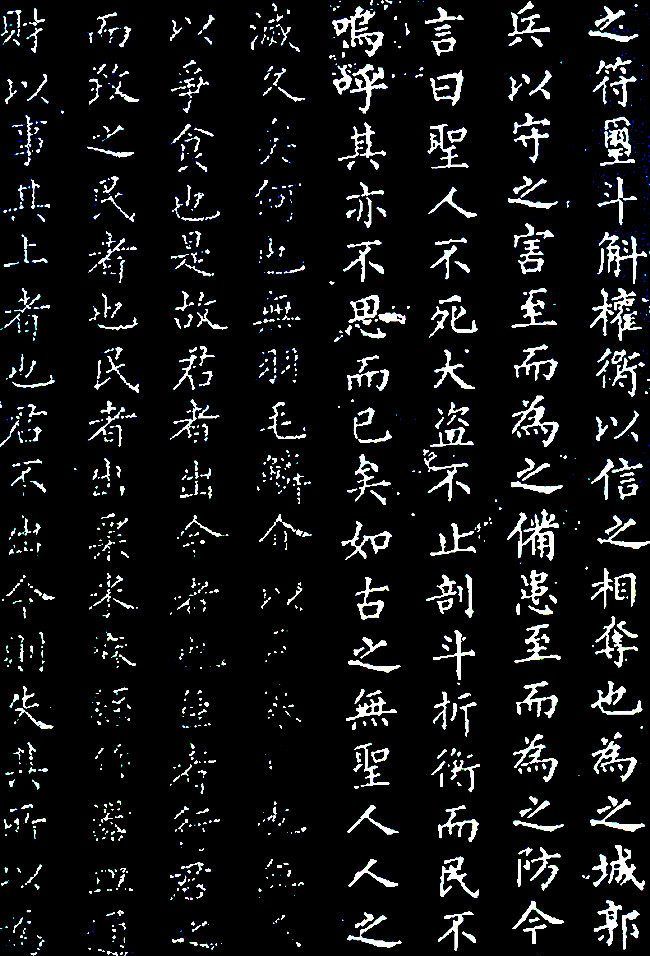 之符璽斗斛權衡以信之相奪也為之城郭
兵以守之害至而為之備患至而為之防今
言曰聖人不死大盜不止剖斗折衡而民不
嗚呼其亦不思而已矣如古之無聖人人之
滅久矣何也無羽毛鱗介以居寒也無
以爭食也是故君者出令者也臣者行君之
而致之民者也民者出粟米麻絲作器皿通
財以事其上者也君不出令則失其所以為